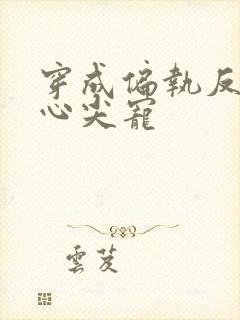 穿成偏執反
心尖寵
雲芨